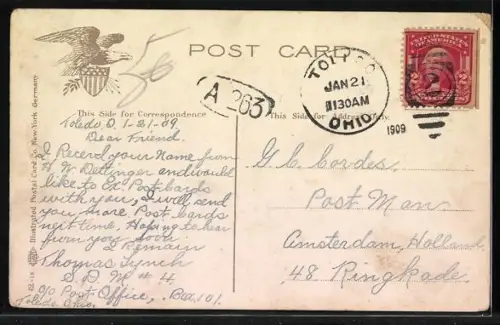 POST CARD
50
This Side for Correspondence
This Side is for Address Only.
A 263
TOLEDO
JAN 21
1130AM
OHIO
1909
UNITED STATES
OF AMERICA
2 2
Toledo, O. 1-21-09.
Dear Friend.
I Recevd your Name from
H. W. Dettinger and would
like to Ex. Post bards
with you, I will send
you more Post bards
next time. Hoping to hear
from you soon
I remain
Thomas Lynch
S. D. M # 4
c/o Post Office, Box 101.
Toledo Ohio.
G. C. Cordes.
Post Man.
Amsterdam, Holland.
48 Ringkade.
Illustrated Postal Card Co., New York, Germany